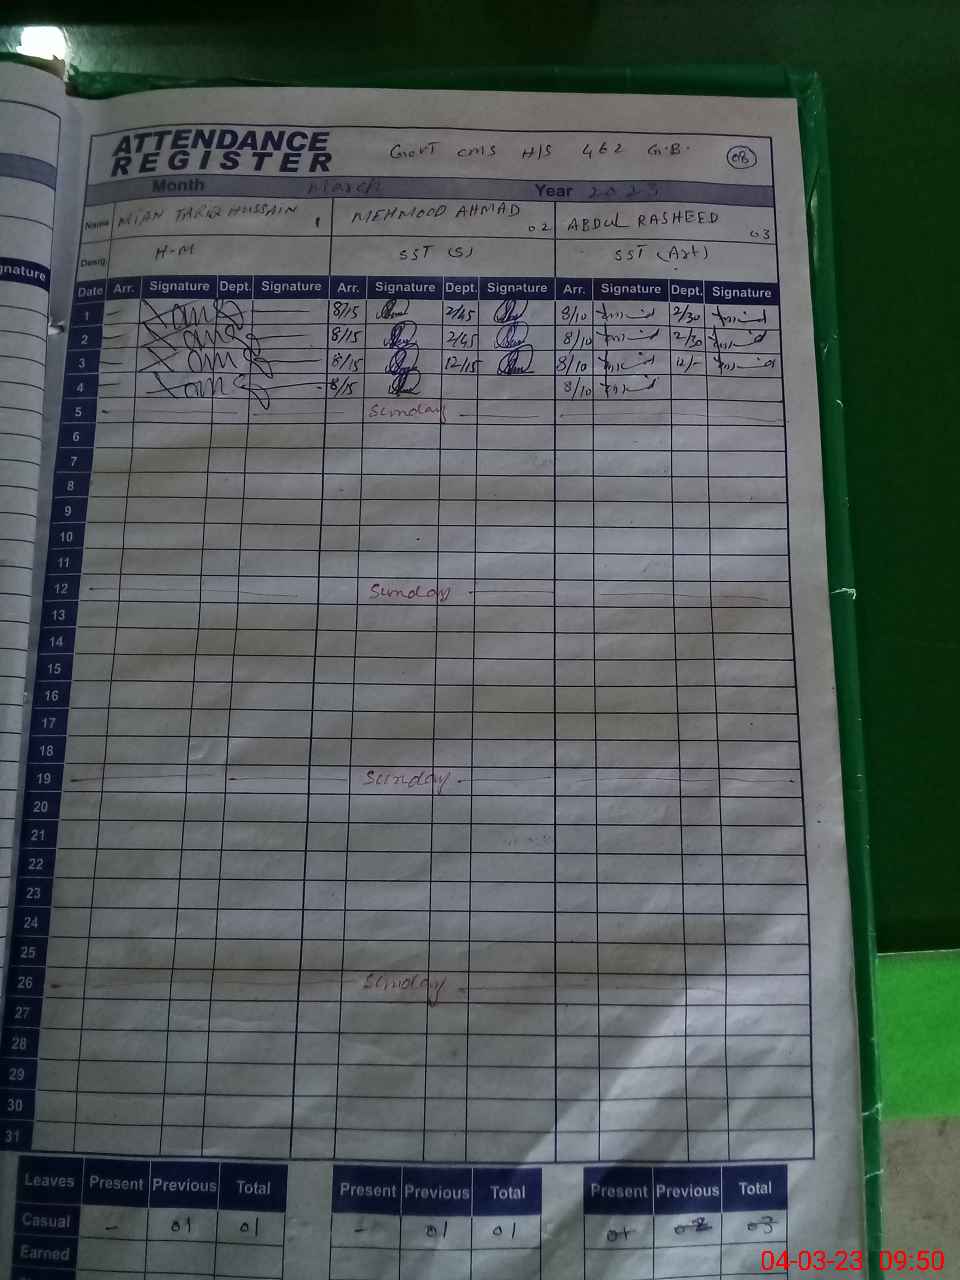 ATTENDANCE
REGISTER
Govt CMS H/S 462 G.B.
Month March Year 2023
Name MIAN TARIQ HUSSAIN 1 MEHMOOD AHMAD 02 ABDUL RASHEED 03
Desig. H-M SST (S) SST (Art)
gnature
Date Arr. Signature Dept. Signature Arr. Signature Dept. Signature Arr. Signature Dept. Signature
1 8/15 2/45 8/10 2/30
2 8/15 2/45 8/10 2/30
3 8/15 12/15 8/10 12/-
4 8/15 8/10
5 Sunday
6
7
8
9
10
11
12 Sunday
13
14
15
16
17
18
19 Sunday
20
21
22
23
24
25
26 Sunday
27
28
29
30
31
Leaves Present Previous Total Present Previous Total Present Previous Total
Casual - 01 01 - 01 01 01 02 03
Earned
04-03-23 09:50